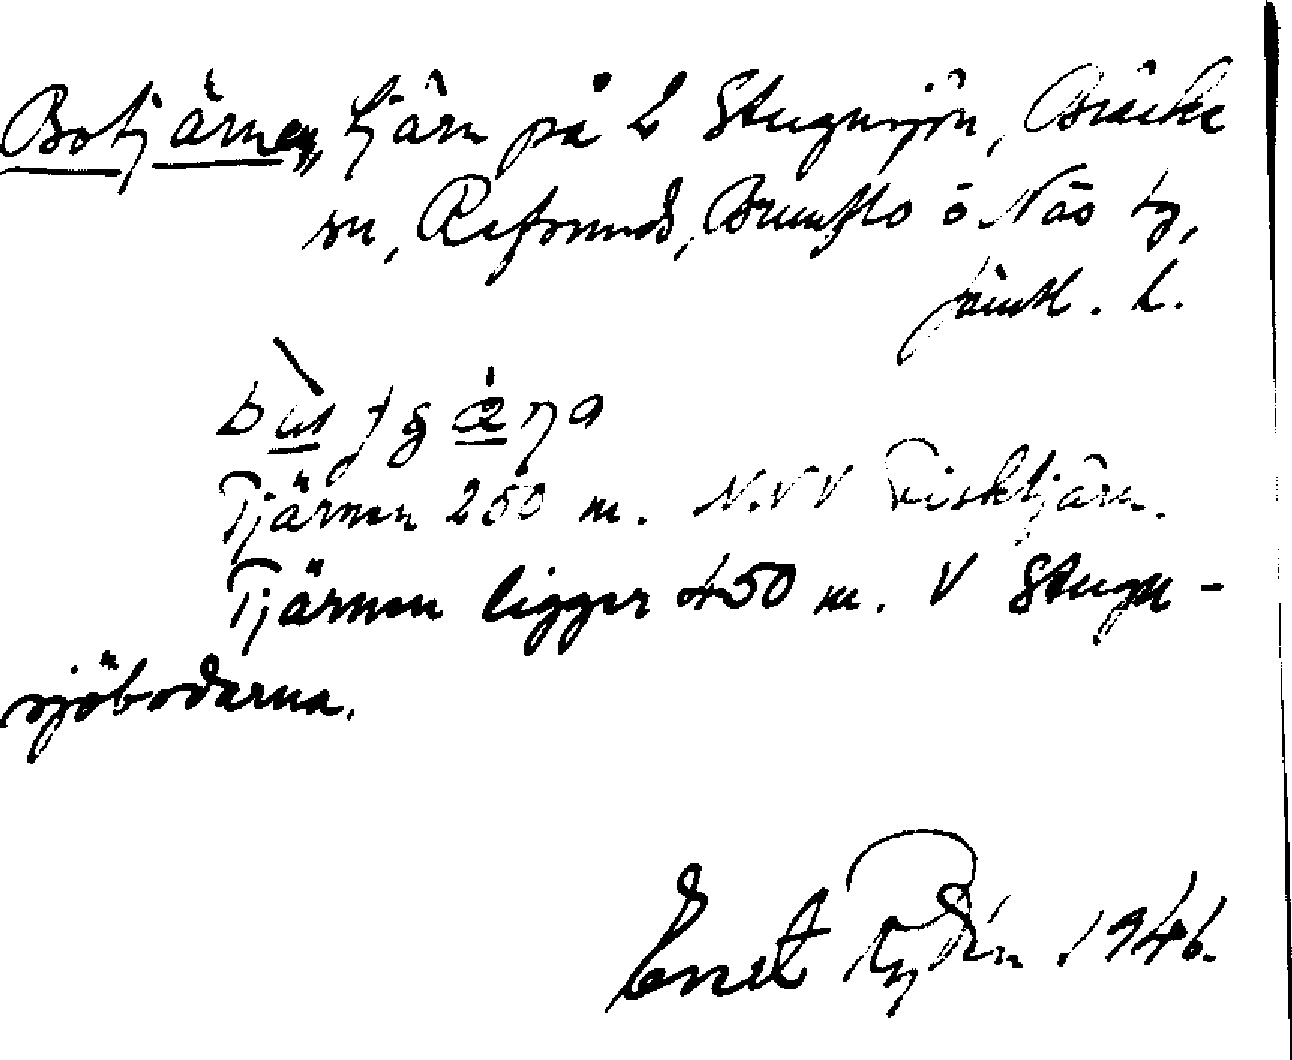 Botjärnen, tjärn på 2 Stugusjön, Bräcke
sn, Refsunds, Brunflo o Näs tg,
Jämtl. L.
Tjärnen 250 m. N.V V Fisktjärn.
Tjärnen ligger 450 m. V Stugu-
sjöbodarna.
Ernst Rydén 1946.